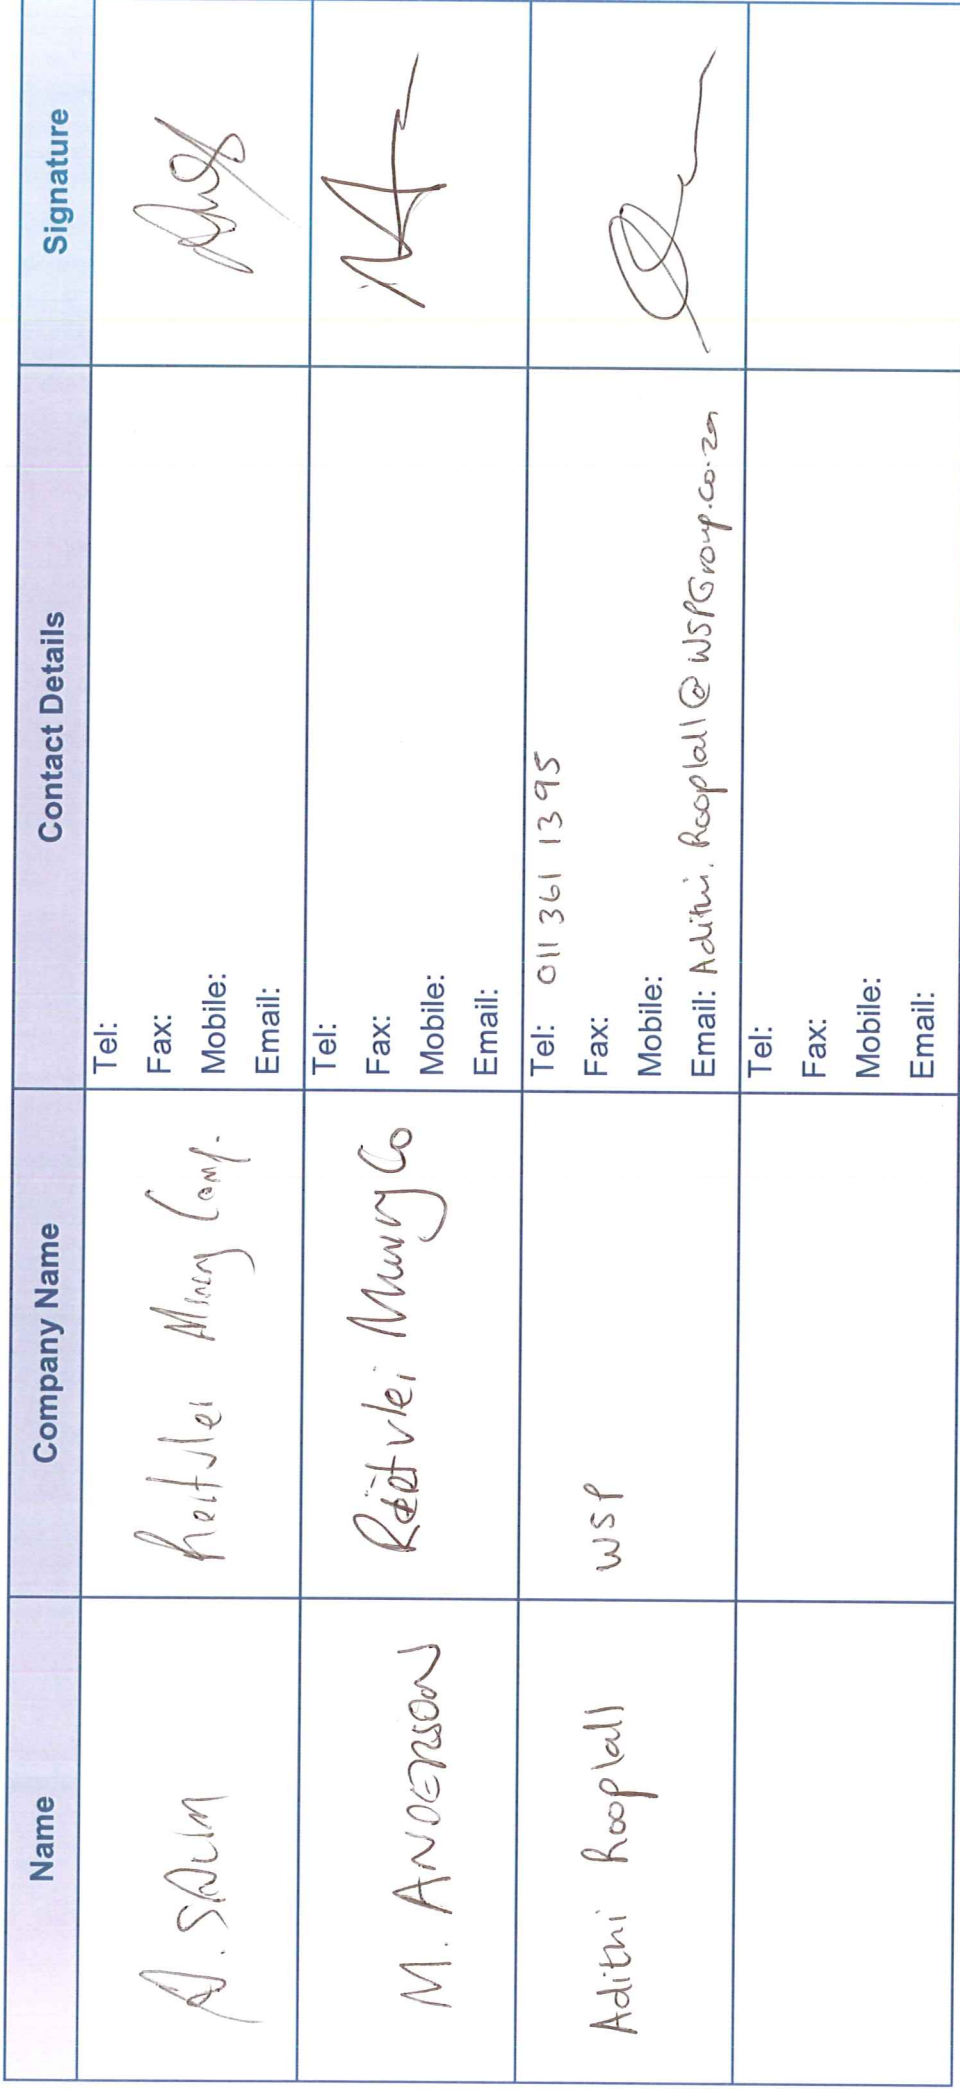 Name Company Name Contact Details Signature
A. SALIM
Mining Comp.
Tel:
Fax:
Mobile:
Email:
M. ANDERSON
Rietvlei Mining Co
Tel:
Fax:
Mobile:
Email:
Adithi Rooplall
WSP
Tel: 011 361 1395
Fax:
Mobile:
Email: Adithi.Rooplall@WSPGroup.co.za
Tel:
Fax:
Mobile:
Email: